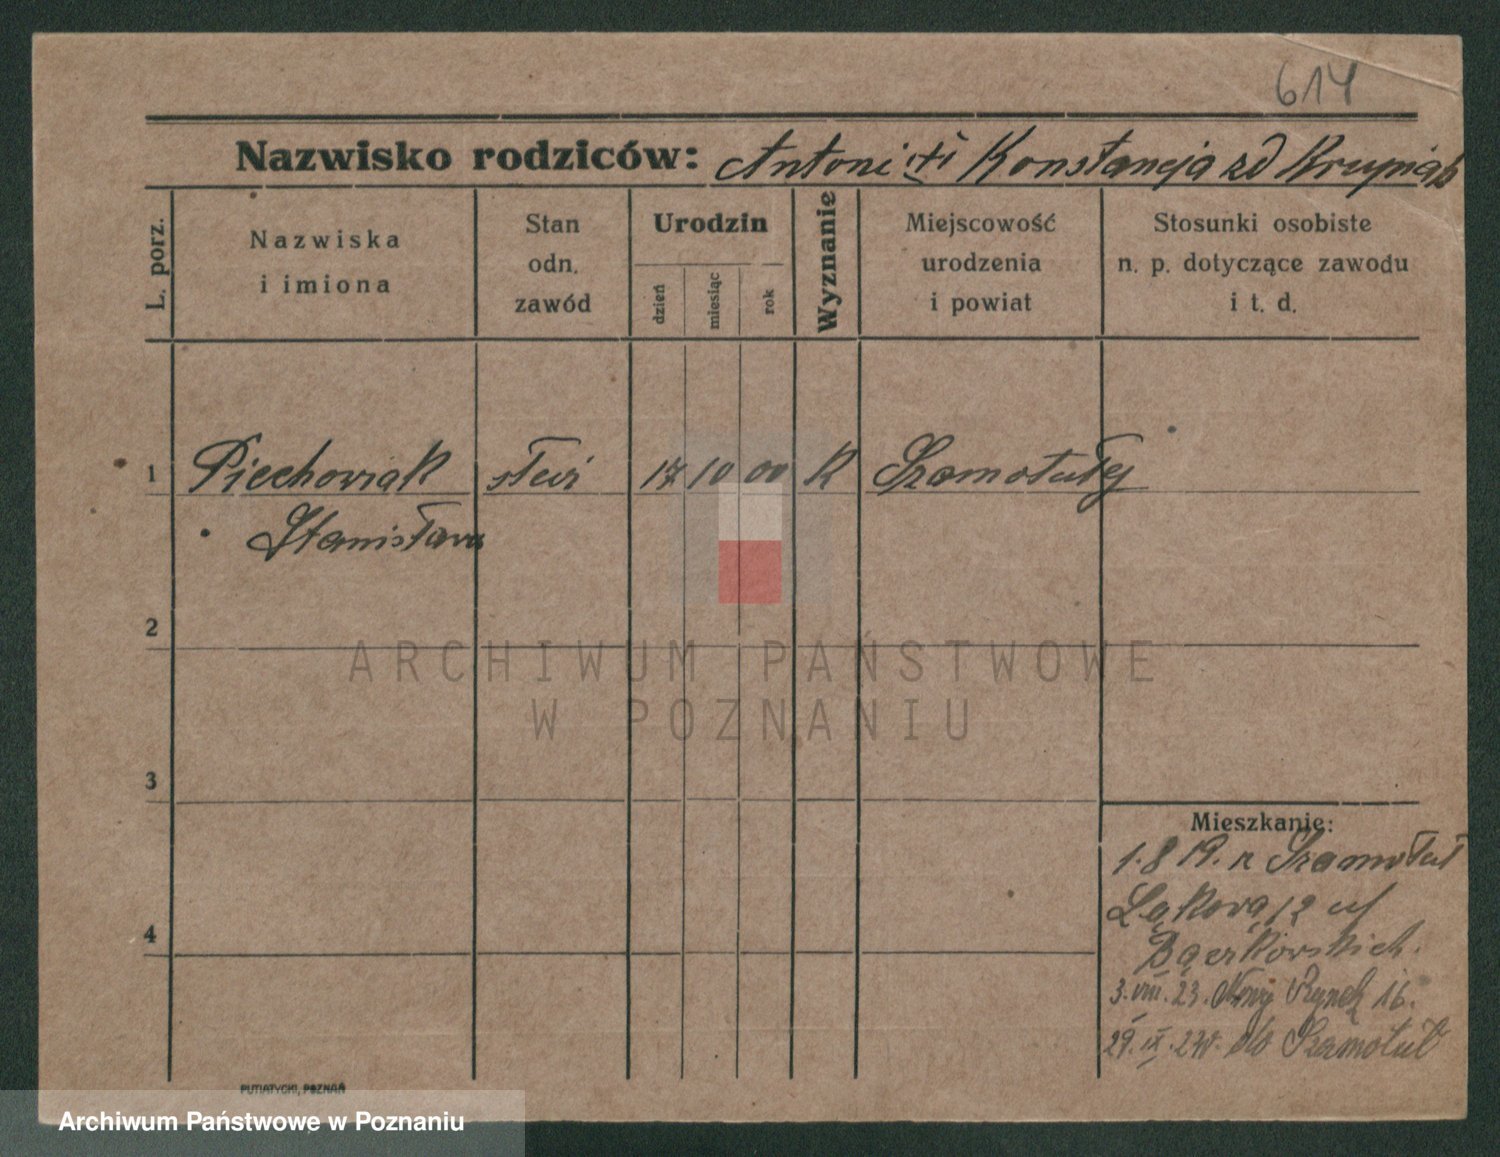 614
Nazwisko rodziców: Antoni i Konstancja zd
L. porz.
Nazwiska
i imiona
Stan
odn.
zawód
Urodzin
dzień
miesiąc
rok
Wyznanie
Miejscowość
urodzenia
i powiat
Stosunki osobiste
n. p. dotyczące zawodu
i t. d.
1 Piechowiak 17 10 00 K Szamotuły
Stanisława
2
ARCHIWUM PAŃSTWOWE
W POZNANIU
3
Mieszkanie:
1.8 19. z Szamotuł
Łąkowa 12 u
Bączkowskich.
4
3. VIII. 23. Nowy Rynek 16.
29. IX. do Szamotuł
PUTIATYCKI, POZNAŃ
Archiwum Państwowe w Poznaniu